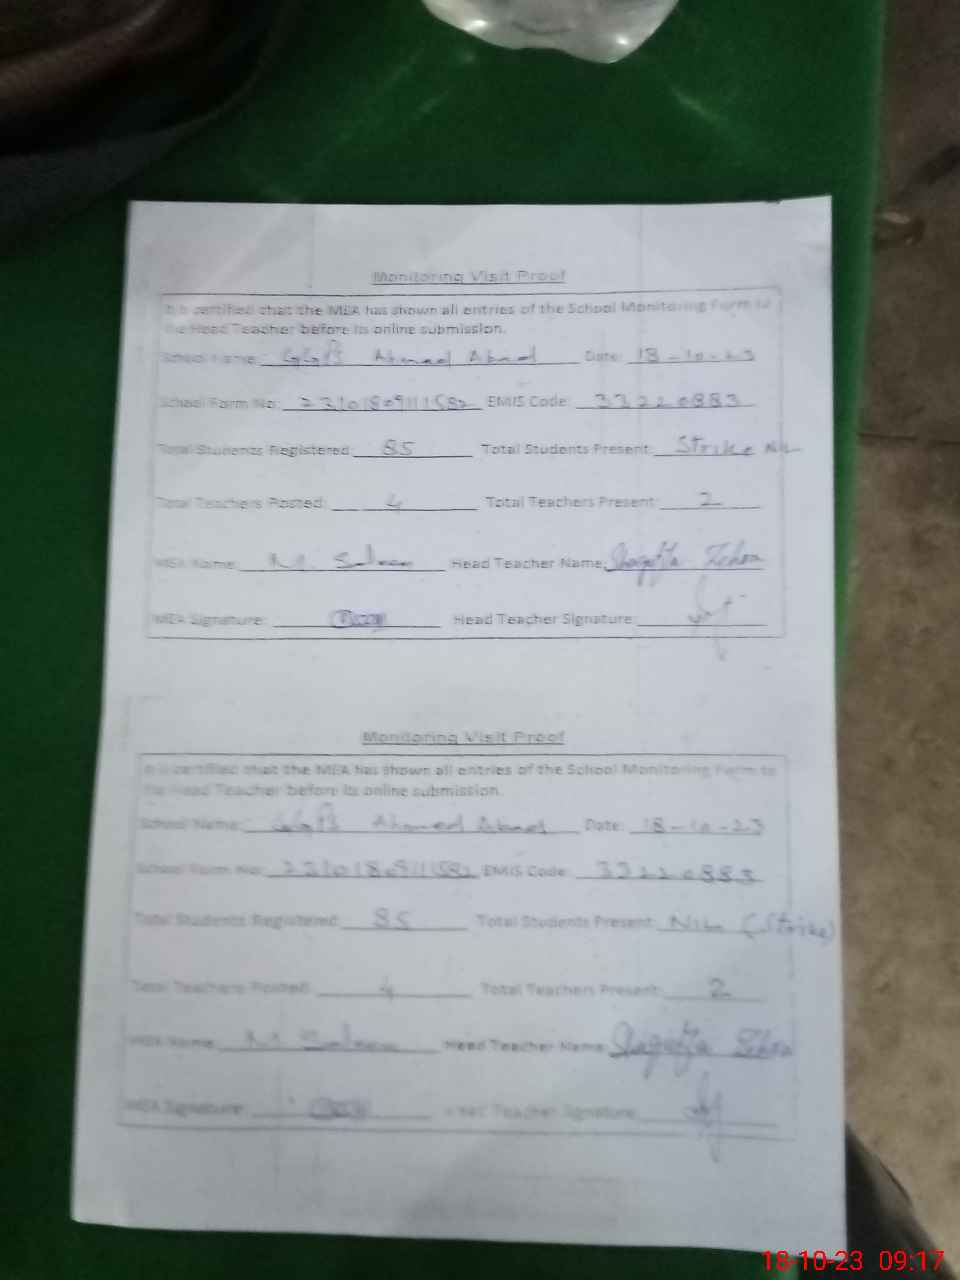 Monitoring Visit Proof
It is certified that the MEA has shown all entries of the School Monitoring Form to
the Head Teacher before its online submission.
School Name: GGPS Ahmed Abad Date: 18-10-23
School Form No: 2310180911582 EMIS Code: 33220883
Total Students Registered: 85 Total Students Present: Strike NIL
Total Teachers Posted: 4 Total Teachers Present: 2
MEA Name: M. Saleem Head Teacher Name: Shagufta Zehra
MEA Signature: Head Teacher Signature:
Monitoring Visit Proof
It is certified that the MEA has shown all entries of the School Monitoring Form to
the Head Teacher before its online submission.
School Name: GGPS Ahmed Abad Date: 18-10-23
School Form No: 2310180911582 EMIS Code: 33220883
Total Students Registered: 85 Total Students Present: NIL (Strike)
Total Teachers Posted: 4 Total Teachers Present: 2
MEA Name: M. Saleem Head Teacher Name: Shagufta Zehra
MEA Signature: Head Teacher Signature:
18-10-23 09:17